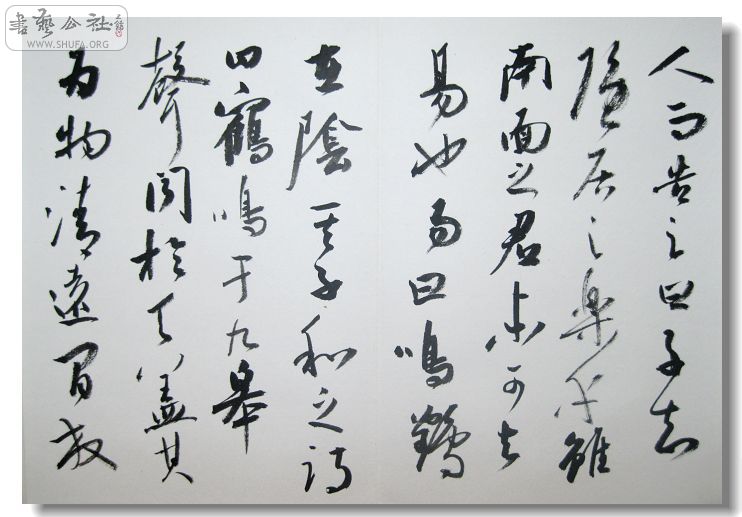 書藝公社
WWW.SHUFA.ORG
人而告之曰子知
隱居之樂乎雖
南面之君未可与
易也易曰鳴鶴
在陰其子和之詩
曰鶴鳴于九皋
聲聞於天蓋其
為物清遠閒放